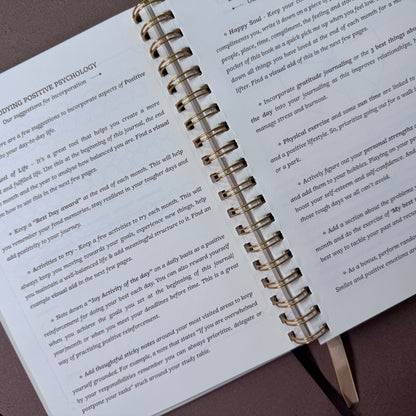 DYING POSITIVE PSYCHOLOGY
Our suggestions for incorporation
are a few suggestions to incorporate aspects of Positive
to your day-to-day life.
of Life - It's a great tool that helps you create a more
and fulfilled life. Use this at the beginning of this journal, the end
month, and the year to analyse how balanced you are. Find a visual
on how to use this in the next few pages.
Keep a "Best Day award" at the end of each month. This will help
you remember your fond memories, stay resilient in tougher days and
add positivity to your journey.
Activities to try - Keep a few activities to try each month. This will
always keep you moving towards your goals, experience new things, help
you maintain a well-balanced life & add meaningful structure to it. Find an
example visual aid in the next few pages.
Note down a "Joy Activity of the day" on a daily basis as a positive
reinforcement for doing your best each day. You can also reward yourself
when you achieve the goals you set at the beginning of this journal/
year/month or when you meet your deadlines before time. This is a great
way of practising positive reinforcement.
Add thoughtful sticky notes around your most visited areas to keep
yourself grounded. For example, a note that states "If you are overwhelmed
by your responsibilities remember you can always prioritize, delegate or
postpone your tasks" stuck around your study table.
Happy Soul - Keep your
compliments you, write it down on a piece of
people, place, time, compliment, the feeling, and
pocket of this book as a quick pick me up when you feel low,
down all things you have loved at the end of each month for a
after. Find a visual aid of this in the next few pages.
Incorporate gratitude journaling or the 3 best things about
the day into your journaling as this improves relationships,
manage stress and burnout.
Physical exercise and some sun time are linked
and a positive lifestyle. So, prioritize going out for a walk
Actively figure out your personal strengths
and add them to your hobbies. Playing on your
boost your self-esteem and self-confidence. And
those tough days we all can't avoid.
Add a section about the problems
month and also the concept of "My best
best way to tackle your past and
As a bonus, perform random
Smiles and positive emotions are